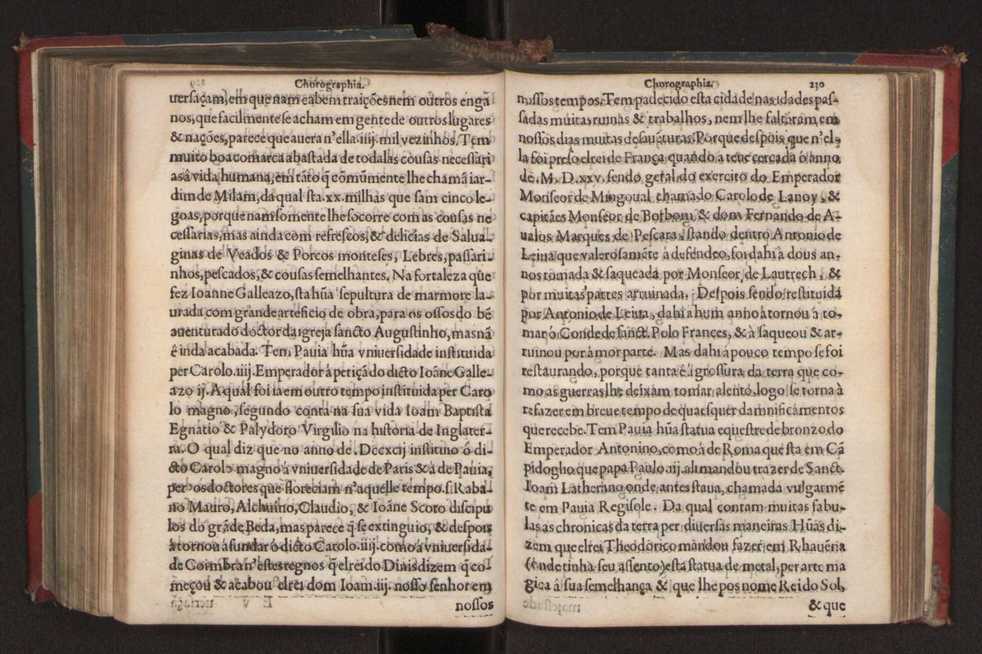 Chorographia.
uersaçam, em que nam cabem traições nem outros engã
nos, que facilmente se acham em gente de outros lugares
& nações, parece que auera n'ella .iiij. mil vezinhos. Tem
muito boa comarca abastada de todalas cousas necessari
as á vida humana, em tãto q̃ cõmũmente lhe chamã iar-
dim de Milam, da qual sta .xx. milhas que sam cinco le-
goas, porque nam somente lhe socorre com as cousas ne
cessarias, mas ainda com refrescos, & delicias de Salua-
ginas de Veados & Porcos monteses, Lebres, passari-
nhos, pescados, & cousas semelhantes. Na fortaleza que
fez Ioanne Galleazo, sta hũa sepultura de marmore la-
urada com grande arteficio de obra, para os ossos do bẽ
auenturado doctor da igreja sancto Augustinho, mas nã
é inda acabada. Tem Pauia hũa vniuersidade instituida
per Carolo .iiij. Emperador à petiçã do dicto Ioãne Galle-
azo ij. A qual foi ia em outro tempo instituida per Caro
lo magno, segundo conta na sua vida Ioam Baptista
Egnatio & Palydoro Virgilio na historia de Inglater-
ra. O qual diz que no anno de .Dccxcij instituio ó di-
cto Carolo magno á vniuersidade de Paris & á de Pauia,
per os doctores que floreciam n'aquelle tempo .s. Raba-
no Mauro, Alchuino, Claudio, & Ioãne Scoto discipu
los do grãde Beda, mas parece q̃ se extinguio, & despois
à tornou à fundar ó dicto Carolo .iiij. como à vniuersida-
de Coimbra n'estes regnos q̃ elrei do Dinis dizem q̃ co-
meçou & acabou elrei dom Ioam .iij. nosso senhor em
E v
nossos
Chorographia.
230
nossos tempos. Tem padecido esta cidade nas idades pas-
sadas muitas ruinas & trabalhos, nem lhe faltaram em
nossos dias muitas desauẽturas. Porque despois que n'el-
la foi preso elrei de França quando à teue cercada ó anno
de .M. D. xxv. sendo geral do exercito do Emperador
Monseor de Mingoual chamado Carolo de Lanoy, &
capitães Monseor de Borbom & dom Fernando de A-
ualos Marques de Pescara, stando dentro Antonio de
Leiua que valerosamẽte à defendeo, foi dahi à dous an-
nos tomada & saqueada per Monseor de Lautrech, &
por muitas partes arruinada. Despois sendo restituida
por Antonio de Leiua, dahi a hum anno à tornou à to-
mar ó Conde de sanct. Polo Frances, & à saqueou & ar-
ruinou por à mor parte. Mas dahi à pouco tempo se foi
restaurando, porque tanta é à grossura da terra que co-
mo as guerras lhe deixam tomar alento, logo se torna à
refazer em breue tempo de quaesquer damnificamentos
que recebe. Tem Pauia hũa statua equestre de bronzo do
Emperador Antonino, como á de Roma que sta em Cã
pidoglio que papa Paulo .iij. ali mandou trazer de Sanct.
Ioam Latherano onde antes staua, chamada vulgarmẽ
te em Pauia Regisole. Da qual contam muitas fabu-
las as chronicas da terra per diuersas maneiras. Hũas di-
zem que elrei Theodorico mandou fazer em Rhauena
(onde tinha seu assento) esta statua de metal, per arte ma
gica á sua semelhança & que lhe pos nome Rei do Sol,
& que